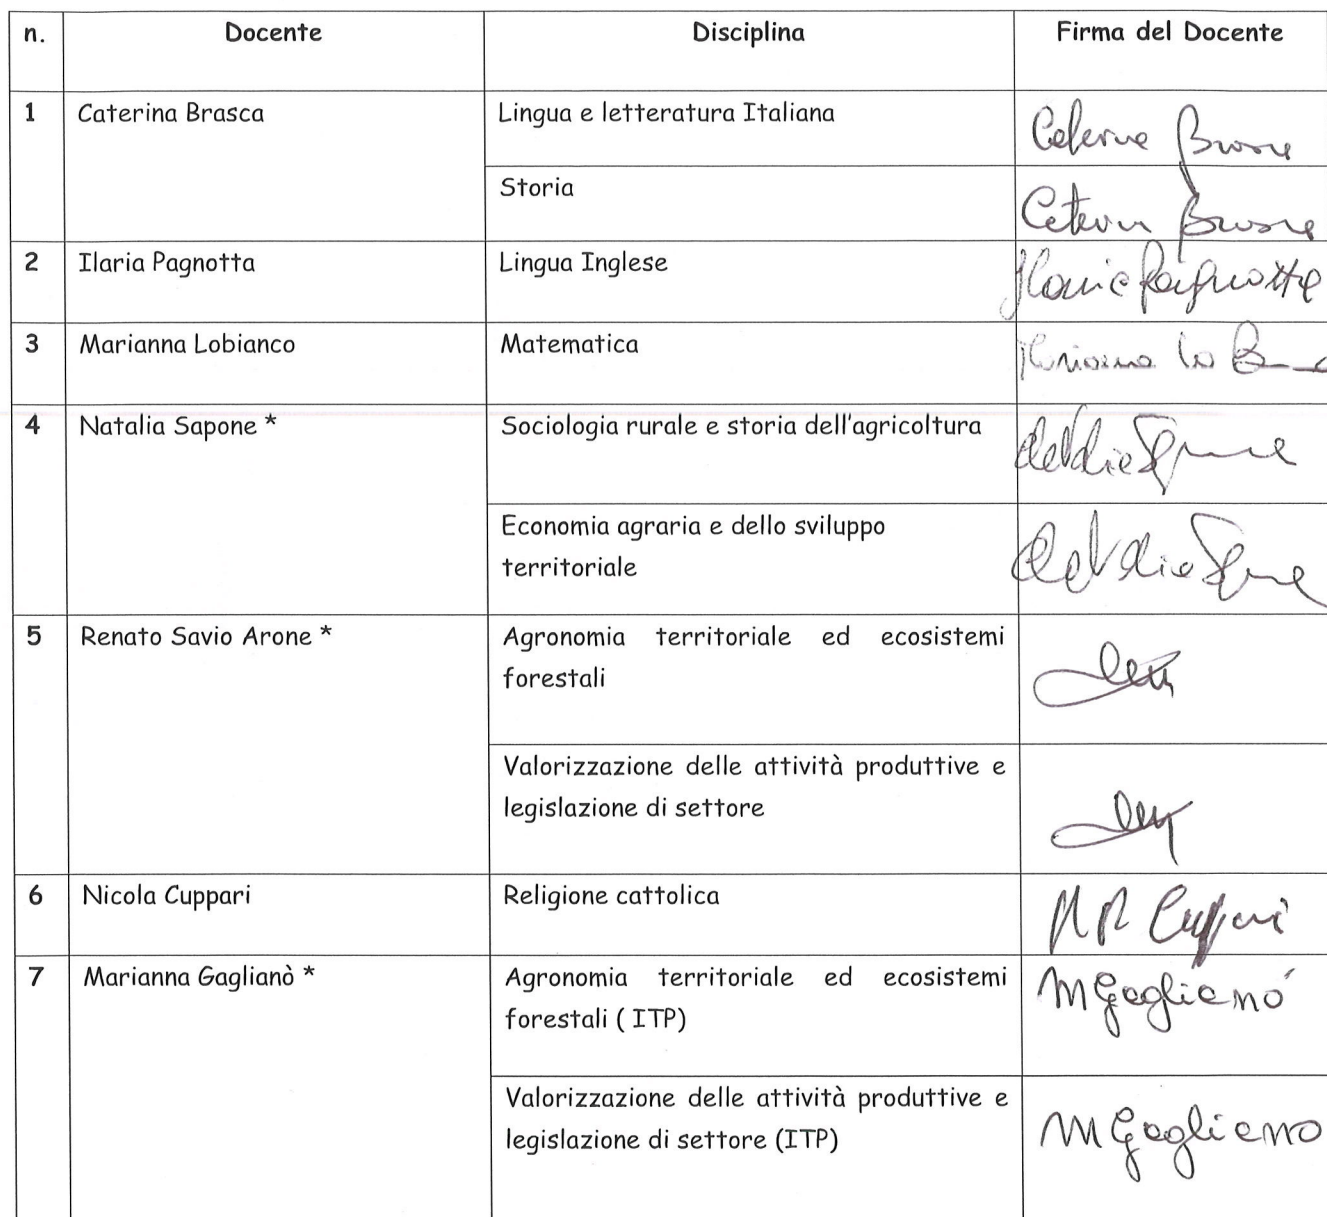 n. Docente Disciplina Firma del Docente
1 Caterina Brasca Lingua e letteratura Italiana
Storia
2 Ilaria Pagnotta Lingua Inglese
3 Marianna Lobianco Matematica
4 Natalia Sapone * Sociologia rurale e storia dell'agricoltura
Economia agraria e dello sviluppo
territoriale
5 Renato Savio Arone * Agronomia territoriale ed ecosistemi
forestali
Valorizzazione delle attività produttive e
legislazione di settore
6 Nicola Cuppari Religione cattolica
Cuppari
7 Marianna Gaglianò * Agronomia territoriale ed ecosistemi
forestali ( ITP)
M Gaglianó
Valorizzazione delle attività produttive e
legislazione di settore (ITP)
M Gagliano